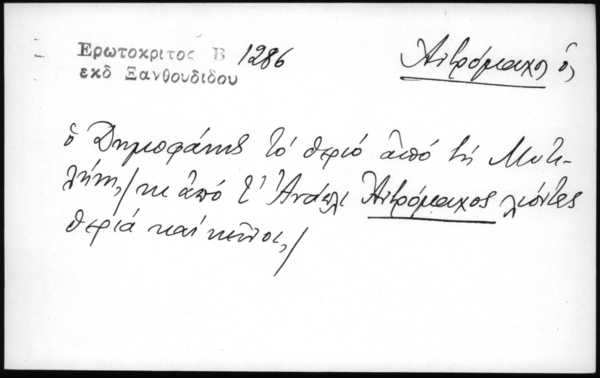 Ερωτοκριτος Β 1286
εκδ Ξανθουδιδου
Ἀντρόμαχος ὁ,
ὁ Δημοφάνης τὸ θεριό ἀπό τή Μυτι-
λήνη,/ κι ἀπό τ' Ἀνάπλι Ἀντρόμαχος λιόντες
θεριά καί κεῖνοι,/